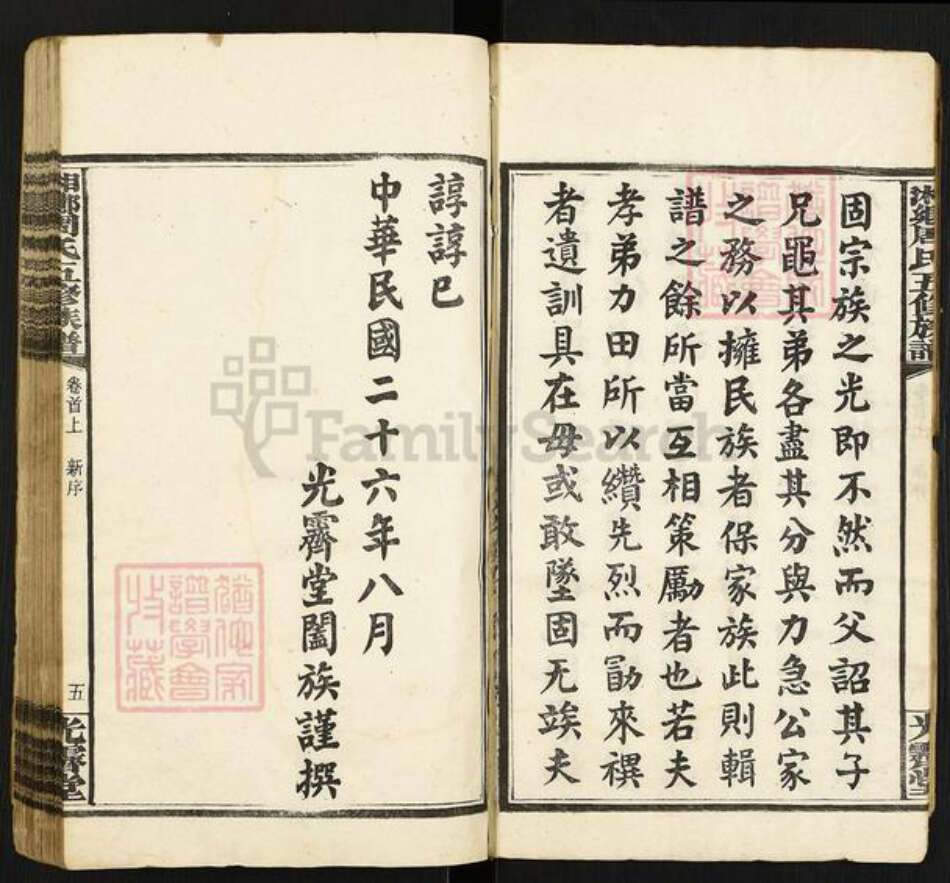 湘鄉周氏五修族譜
固宗族之光即不然而父詔其子
兄黽其弟各盡其分與力急公家
之務以擁民族者保家族此則輯
譜之餘所當互相策勵者也若夫
孝弟力田所以纘先烈而勖來禩
者遺訓具在毋或敢墜固无竢夫
諄諄巳
中華民國二十六年八月
光霽堂闔族謹撰
湘鄉周氏五修族譜
卷首上 新序
五
光霽堂
FamilySearch